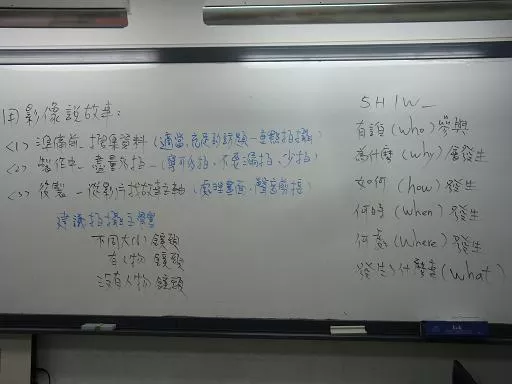 用影像說故事:
<1> 準備前_搜集資料(適當充足的訪題_重點拍攝)
<2> 製作中_盡量多拍_(寧可多拍,不要漏拍,少拍)
<3> 後製_從影片找故事主軸(處理畫面,聲音剪接)
建議拍攝主
不同大小鏡頭
有人物鏡頭
沒有人物鏡頭
5H1W_
有誰(who)參與
為什麼(why)會發生
如何(how)發生
何時(when)發生
何處(where)發生
發生什麼事(what)